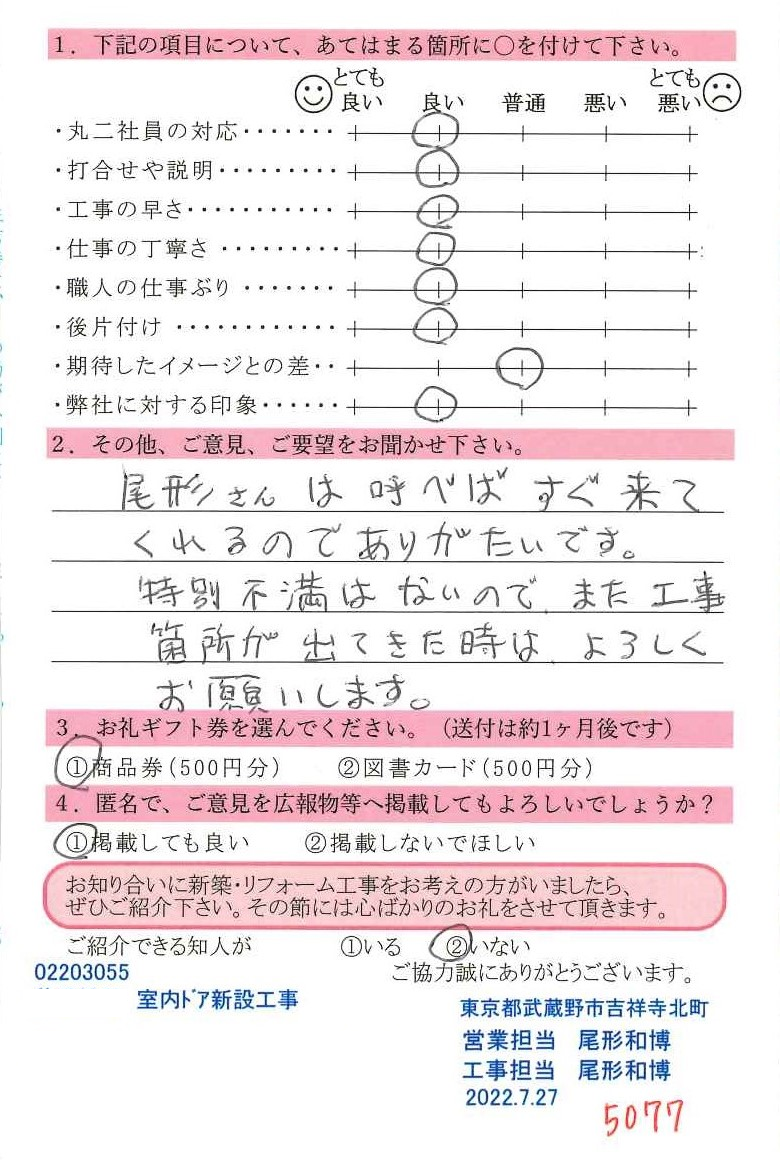 1. 下記の項目について、あてはまる箇所に○を付けて下さい。
とても良い 良い 普通 悪い とても悪い
・丸二社員の対応・・・・・・・
・打合せや説明・・・・・・・・・
・工事の早さ・・・・・・・・・・・
・仕事の丁寧さ ・・・・・・・・・
・職人の仕事ぶり ・・・・・・・
・後片付け ・・・・・・・・・・・・
・期待したイメージとの差・・
・弊社に対する印象・・・・・・
2. その他、ご意見、ご要望をお聞かせ下さい。
尾形さんは呼べばすぐ来て
くれるのでありがたいです。
特別不満はないので、また工事
箇所が出てきた時は、よろしく
お願いします。
3. お礼ギフト券を選んでください。（送付は約1ヶ月後です）
①商品券(500円分) ②図書カード(500円分)
4. 匿名で、ご意見を広報物等へ掲載してもよろしいでしょうか？
①掲載しても良い ②掲載しないでほしい
お知り合いに新築・リフォーム工事をお考えの方がいましたら、
ぜひご紹介下さい。その節には心ばかりのお礼をさせて頂きます。
ご紹介できる知人が ①いる ②いない
02203055 ご協力誠にありがとうございます。
室内ﾄﾞｱ新設工事
東京都武蔵野市吉祥寺北町
営業担当 尾形和博
工事担当 尾形和博
2022.7.27
5077